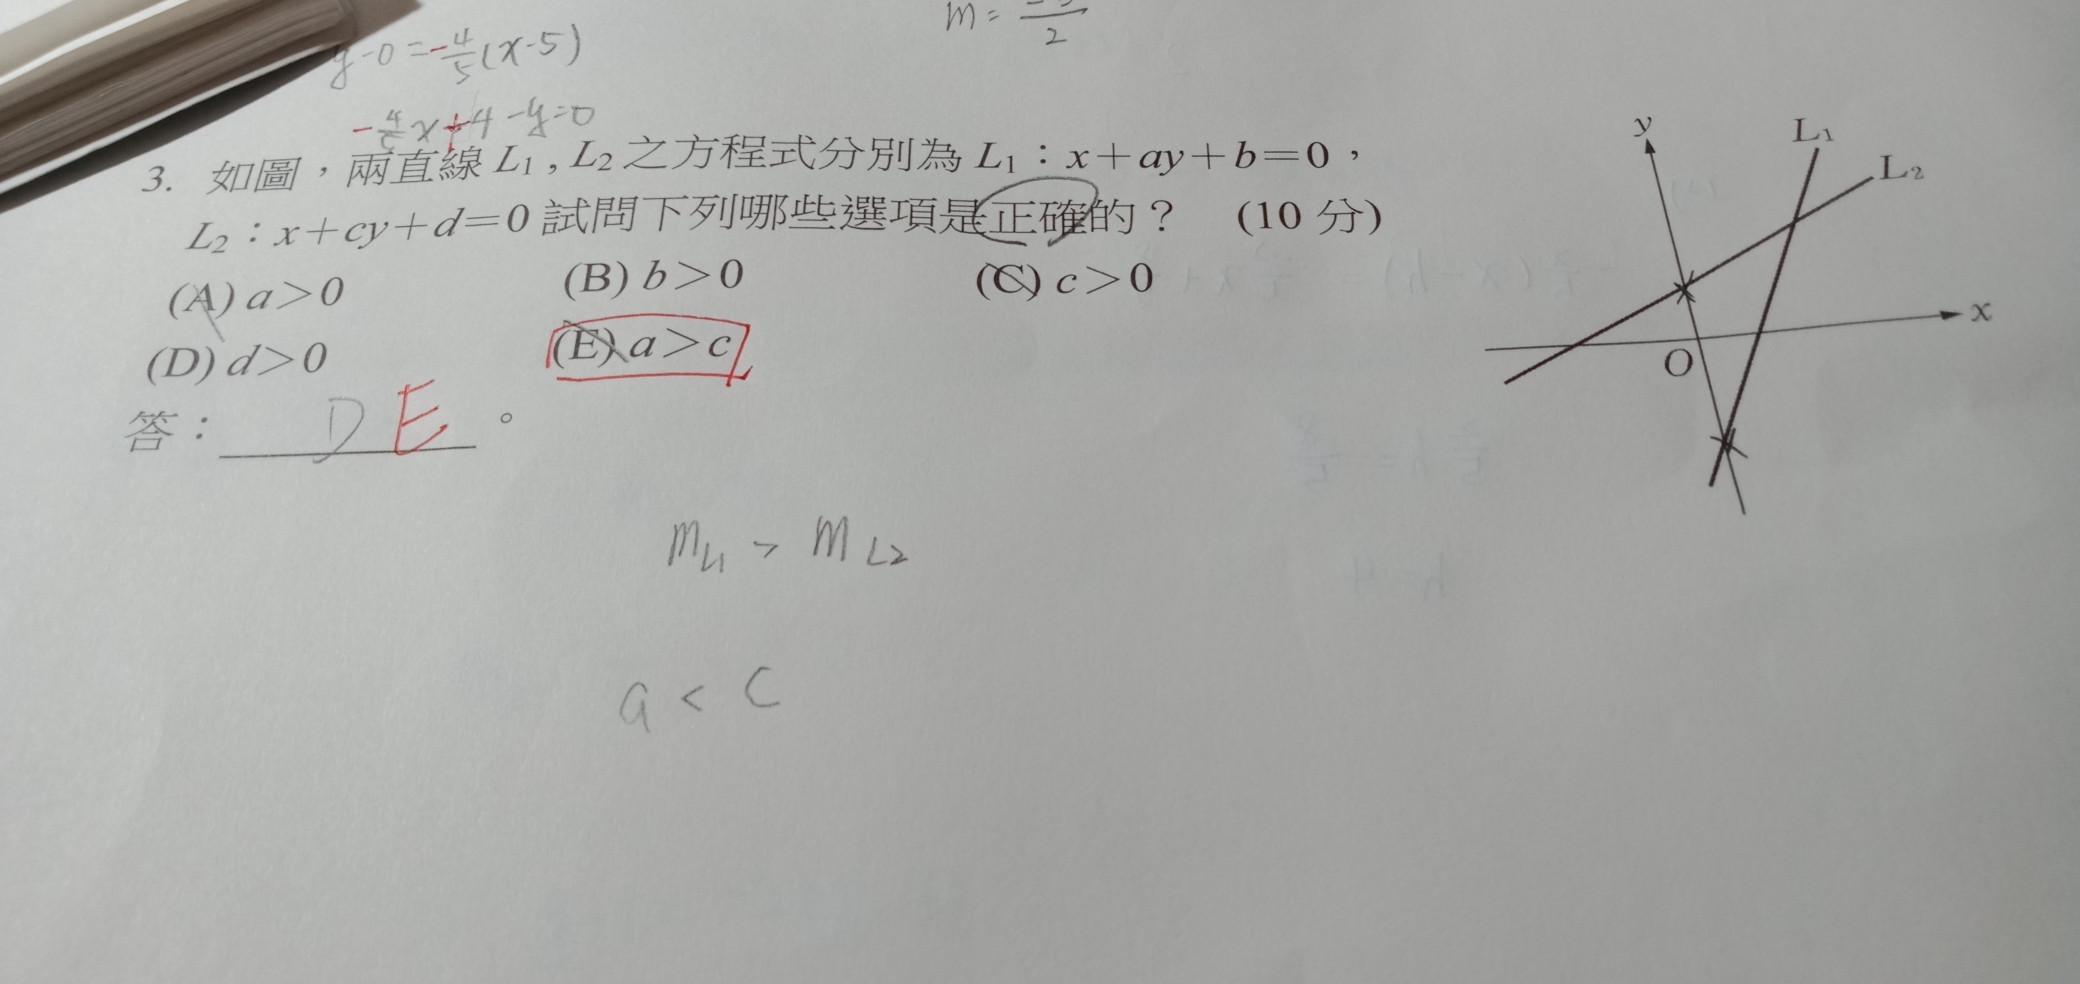 y-0=-4/5(x-5)
m=
2
-x+4-y=0
3. 如圖，兩直線 L₁ , L₂ 之方程式分別為 L₁：x＋ay＋b＝0，
L₂：x＋cy＋d＝0 試問下列哪些選項是正確的？ (10 分)
(A) a＞0 (B) b＞0 (C) c＞0
(D) d＞0 (E) a＞c
答： D E 。
y L₁ L₂
x
O
m_L1 > m_L2
a < c